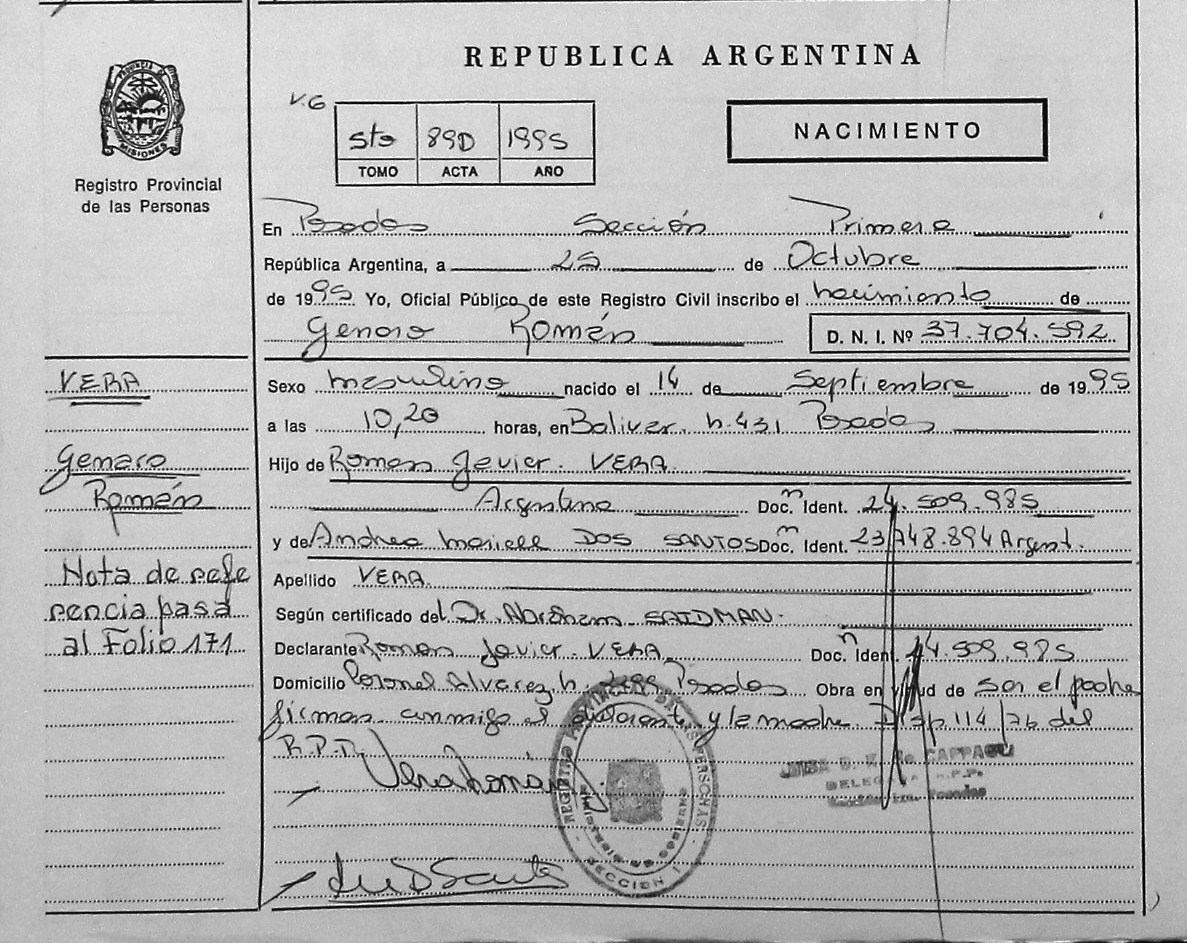 REPUBLICA ARGENTINA
V.G
5to 89D 1995
TOMO ACTA AÑO
NACIMIENTO
PROVINCIA DE MISIONES
Registro Provincial
de las Personas
En Posadas Sección Primera
República Argentina, a 25 de Octubre
de 1995 Yo, Oficial Público de este Registro Civil inscribo el nacimiento de
Genaro Román D. N. I. Nº 37.704.592
VERA
Sexo masculino nacido el 14 de Septiembre de 1995
a las 10,20 horas, en Bolivar n. 431 Posadas
Genaro
Hijo de Roman Javier. VERA
Román
Argentino Doc. Ident. 24.509.985
y de Andrea Mariela DOS SANTOS Doc. Ident. 23.748.894 Argent.
Nota de refe
Apellido VERA
rencia pasa
Según certificado del Dr. Abraham SAIDMAN.
al Folio 171
Declarante Roman Javier. VERA Doc. Ident. 24.509.985
Domicilio Coronel Alvarez n. Posadas Obra en virtud de Ser el padre
firman conmigo el declarante y la madre Disp. 114/76 del
R.P.P.
Vera Román
REGISTRO PROVINCIAL DE LAS PERSONAS
MINISTERIO DE GOBIERNO
SECCION 1
DE CAPPAGLI
DELEGADA R.P.P.
Sección 1ra. Posadas